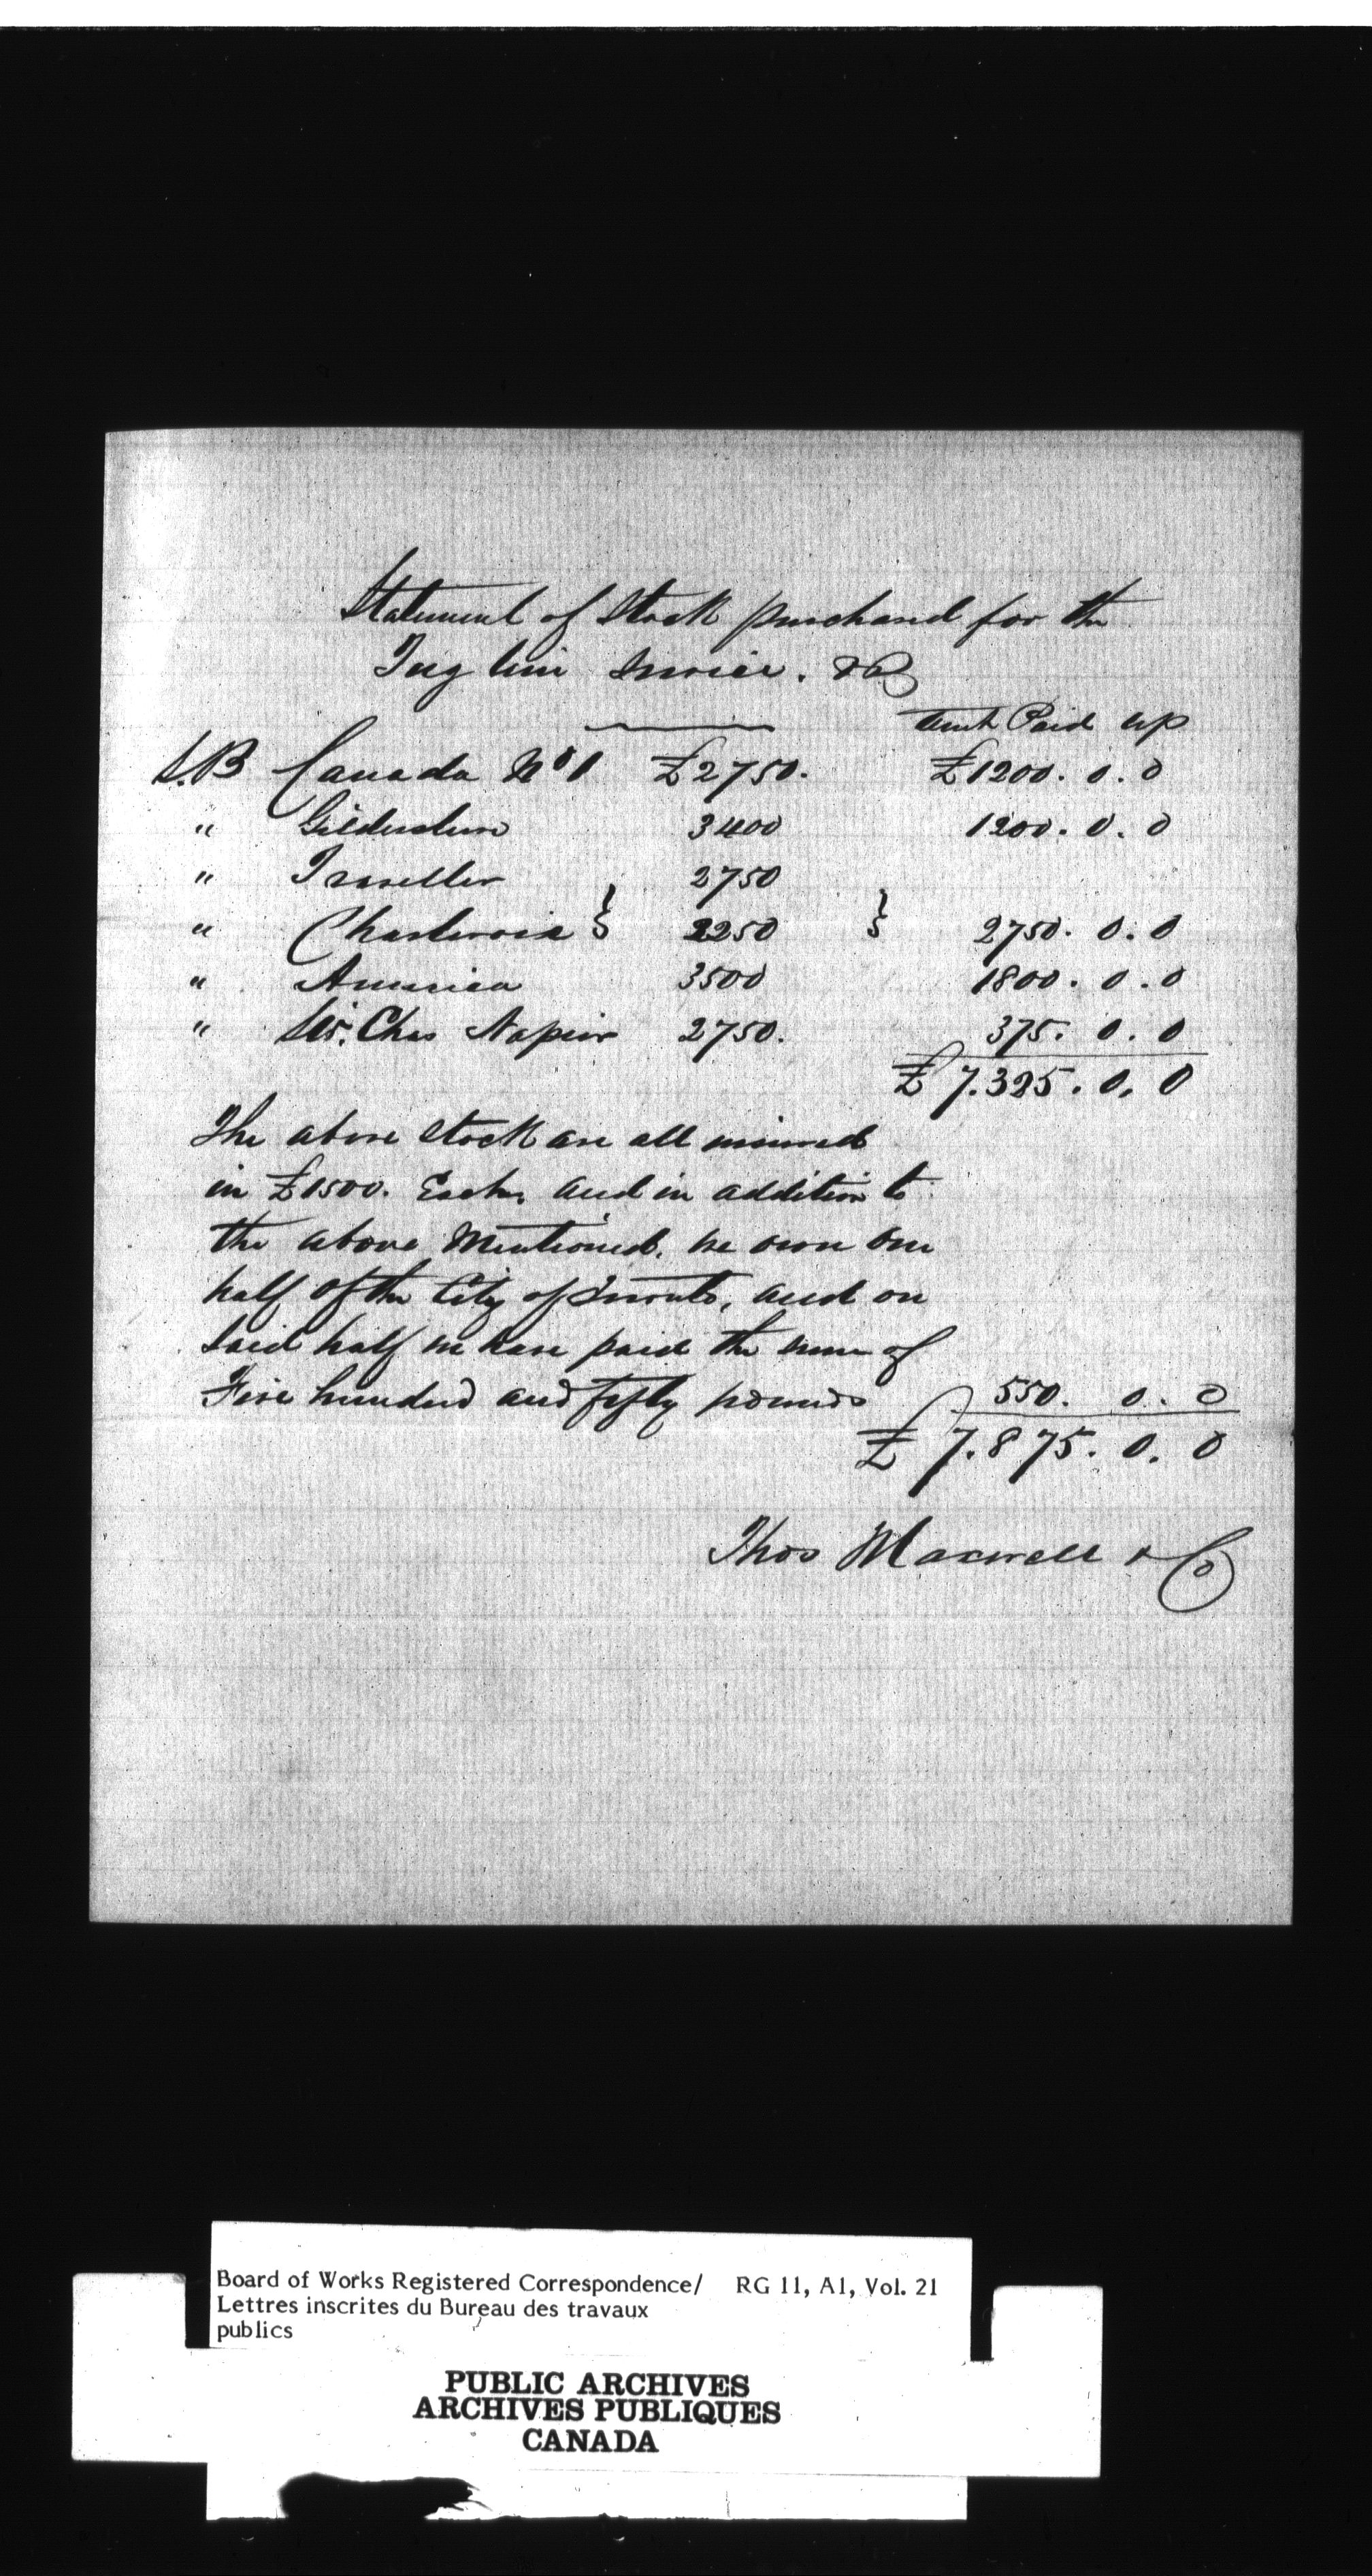 Statement of Stock purchased for the
Tug line Service. &c
Amt Paid up
S.B Canada No 1 £2750. £1200. 0. 0
" Gildersleeve 3400 1200. 0. 0
" Traveller 2750
" Charlevoix } 2250 } 2750. 0. 0
" America 3500 1800. 0. 0
" Sir. Chas Napier 2750. 375. 0. 0
£7.325. 0. 0
The above Stock are all insured
in £1500. Each, and in addition to
the above Mentioned. we own one
half of the City of Toronto, and on
said half we have paid the sum of
Five hundred and fifty pounds 550. 0. 0
£7.875. 0. 0
Thos Maxwell & Co
Board of Works Registered Correspondence/ RG 11, A1, Vol. 21
Lettres inscrites du Bureau des travaux
publics
PUBLIC ARCHIVES
ARCHIVES PUBLIQUES
CANADA